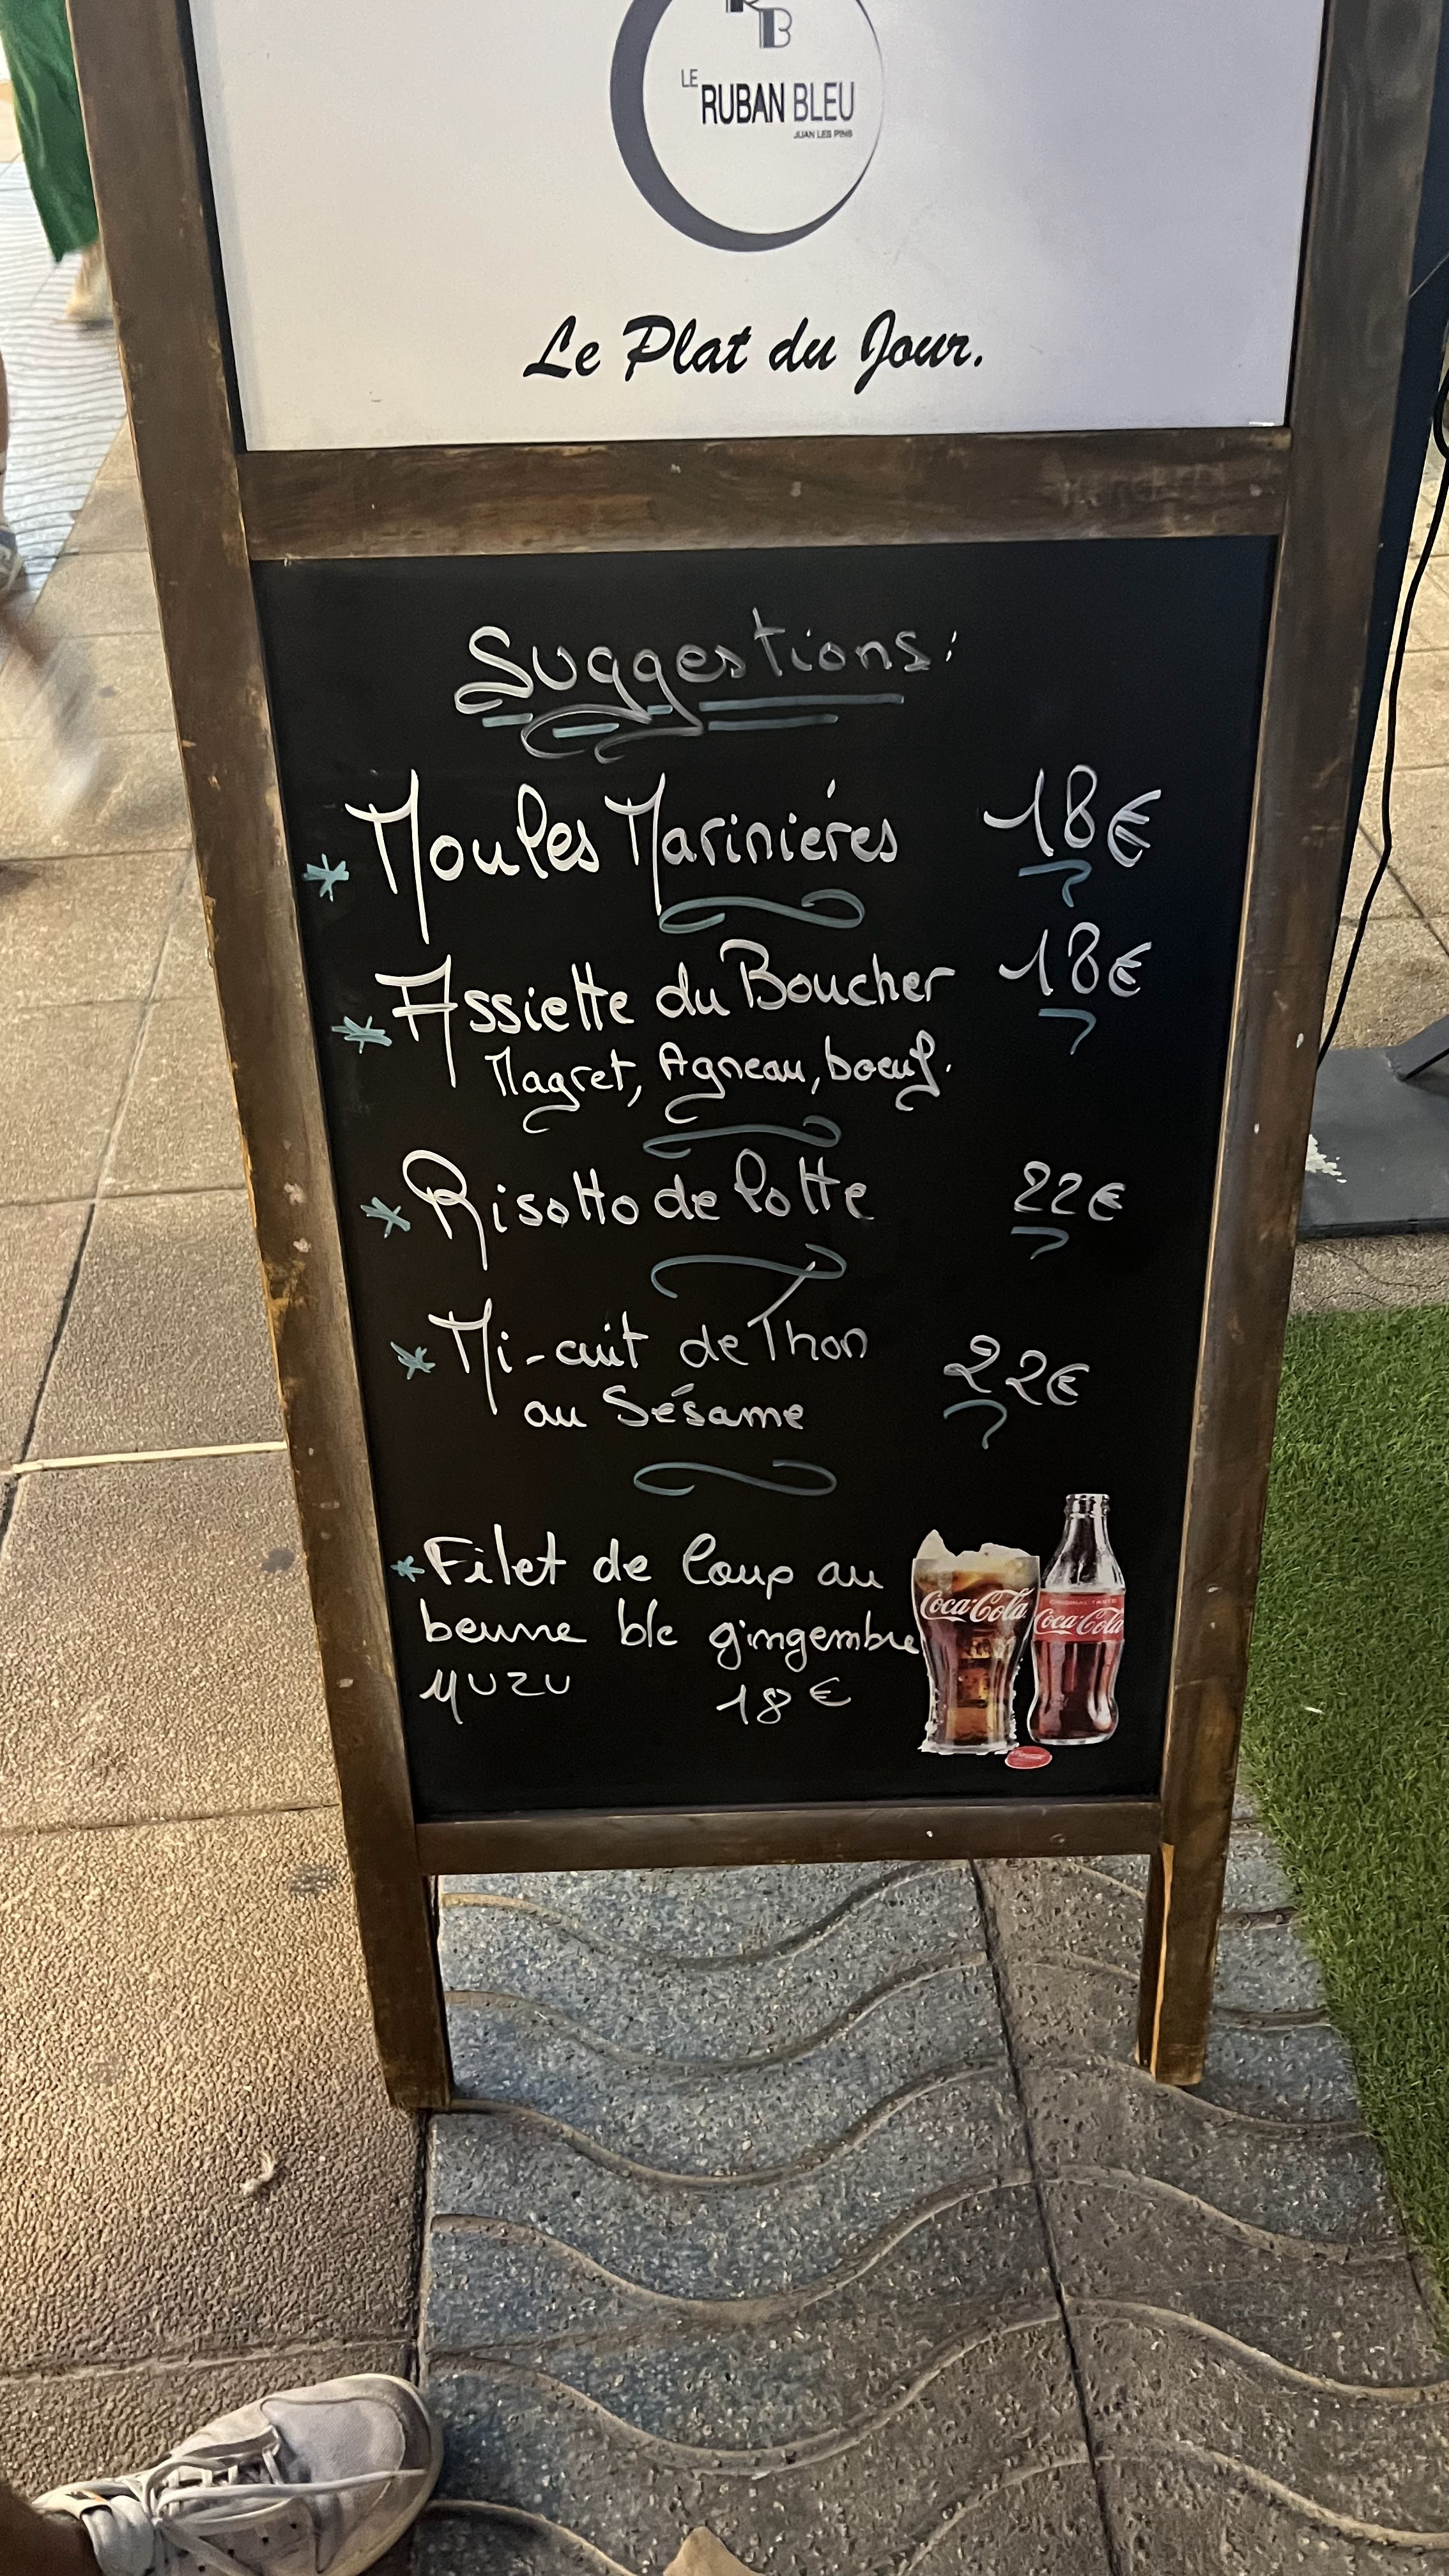 RB
LE
RUBAN BLEU
JUAN LES PINS
Le Plat du Jour.
Suggestions:
* Moules Mariniéres 18€
* Assiette du Boucher 18€
Magret, Agneau, boeuf.
* Risotto de lotte 22€
* Mi-cuit de Thon
au Sésame 22€
* Filet de loup au
beurre blc gingembre
yuzu 18€
Coca-Cola
ORIGINAL TASTE
Coca-Cola